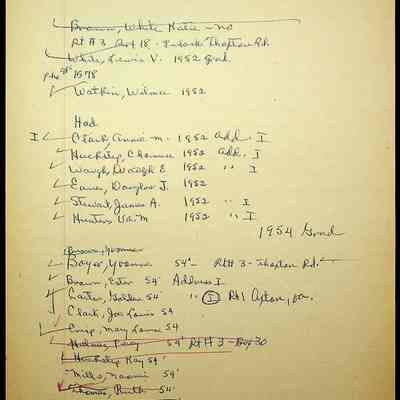 Brown, White Katie - no
Rt # 3 Box 18 - Thopton Rd
White, Lewis V. 1952 Grad.
1578
Watkin, Wilma 1952
Had
I Clark, Annie M. 1952 Add. I
Huckstep, Clarence 1952 Add. I
Waugh, Dudley E. 1952 " I
Eaves, Douglas J. 1952
Stewart, James A. 1952 " I
Hunter, Va. M 1952 " I
1954 Grad
Brown, Yvonne
Boyer, Yvonne 54' - Rt # 3 - Thopton Rd.
Brown, Ester 54 Address I
Carter, Golden 54 " I Rt 1 Afton, Va.
Clark, Joe Louis 54
Crisp, Mary Louise 54
Holmes, 54' Rt # 3 - Box 30
Huckstep Ray 54'
Mills, Naomi 54'
Thomas, Ruth 54'